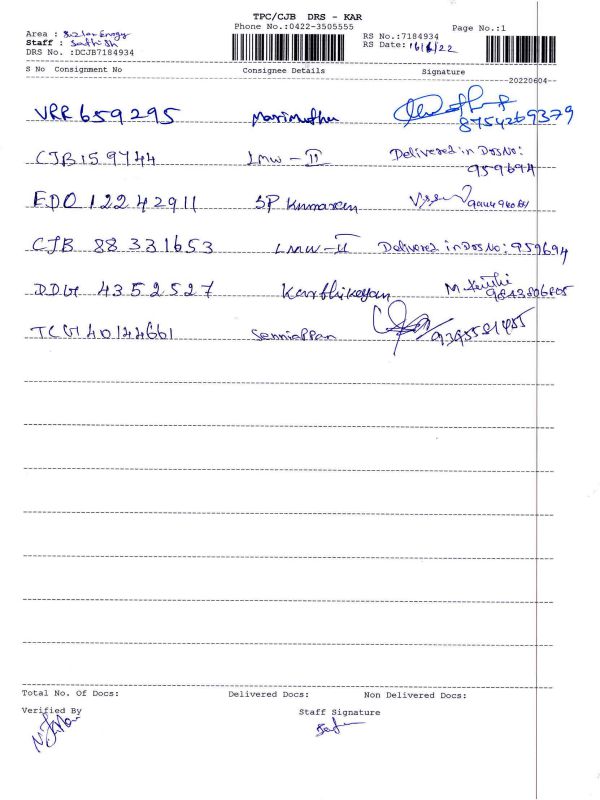 TPC/CJB DRS - KAR
Phone No.:0422-3505555
Page No.:1
Area : Suzlon Energy
Staff : Sathish
DRS No. :DCJB7184934
RS No.:7184934
RS Date: 16/6/22
S No Consignment No Consignee Details Signature
20220604
VRR 659295 Marimuthu
8754269379
CJB 159744 LMW - II Delivered in Drs No:
959694
EDO 12242911 SP Kumaran
CJB 88331653 LMW - II Delivered in Drs No: 959694
DDG 4352527 Karthikeyan
TCG 40144661 Senniappan
Total No. Of Docs: Delivered Docs: Non Delivered Docs:
Verified By Staff Signature